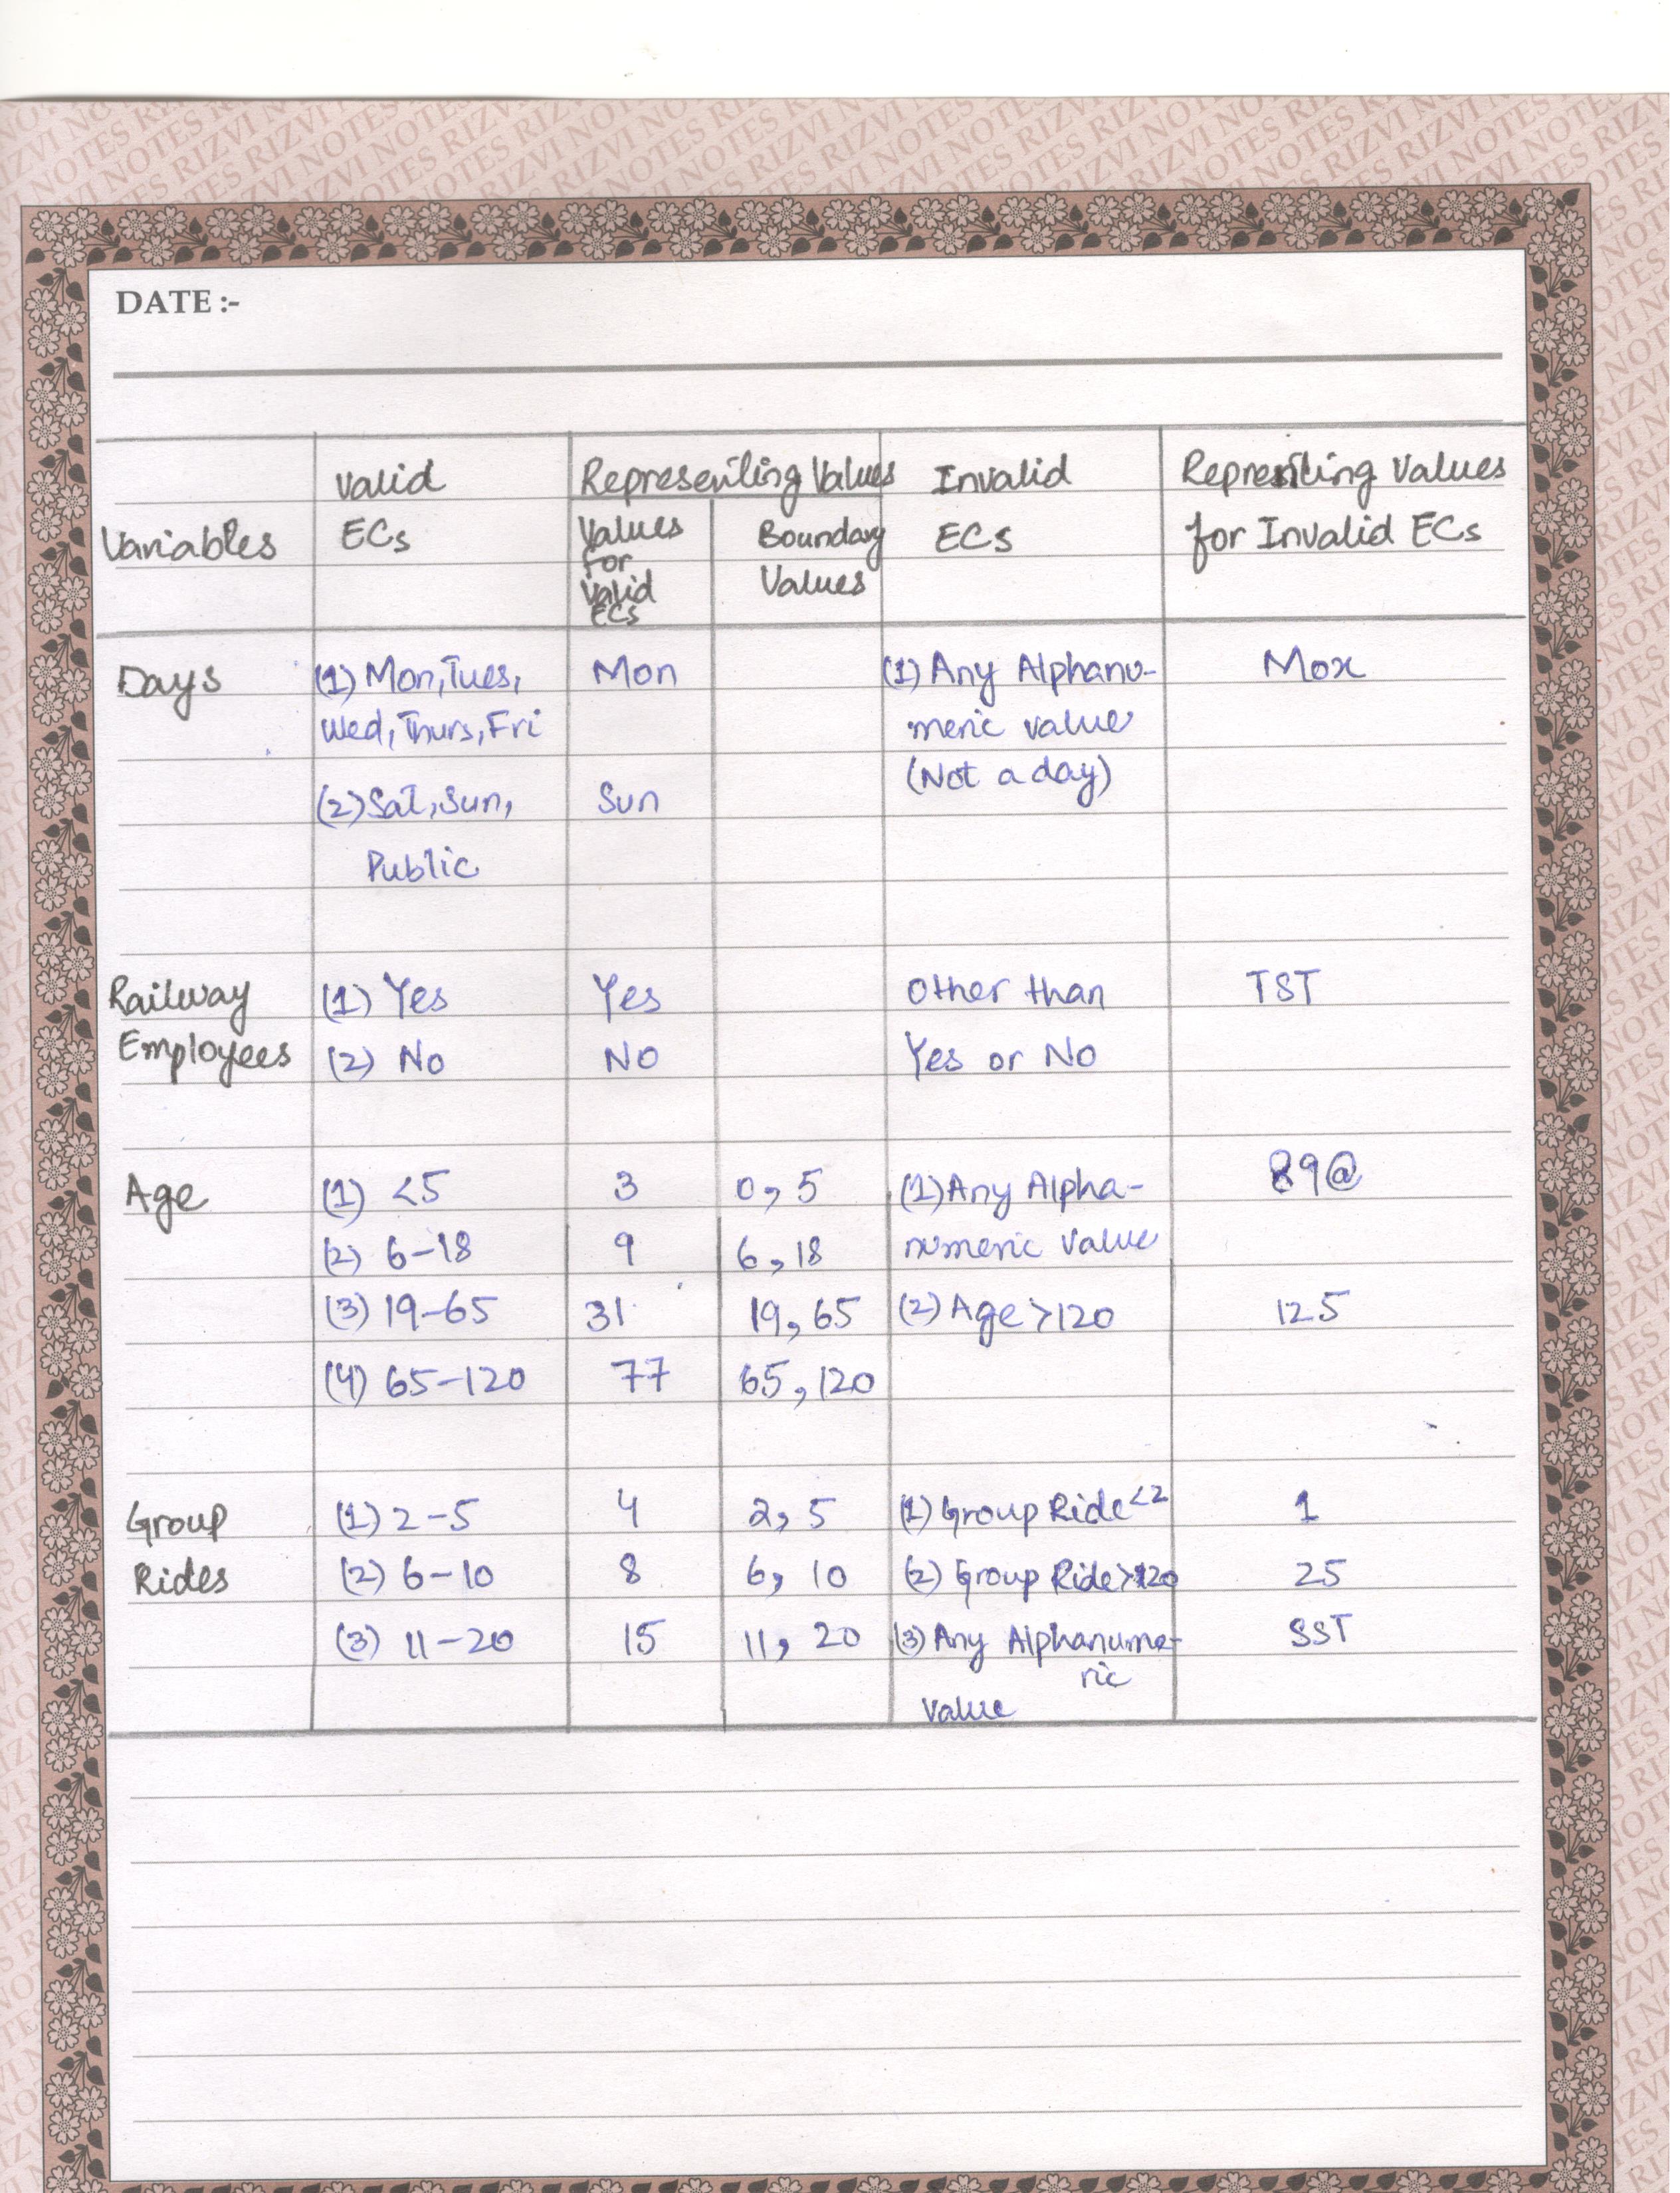 DATE :-
Variables
Valid
ECs
Representing Values
Values
For
Valid
ECs
Boundary
Values
Invalid
ECs
Represnting Values
for Invalid ECs
Days
(1) Mon, Tues,
Wed, Thurs, Fri
(2) Sat, Sun,
Public
Mon
Sun
(1) Any Alphanu-
meric value
(Not a day)
Mox
Railway
Employees
(1) Yes
(2) No
Yes
No
Other than
Yes or No
TST
Age
(1) <5
3
0, 5
(1) Any Alpha-
numeric Value
89@
(2) 6-18
9
6, 18
(3) 19-65
31
19, 65
(2) Age >120
125
(4) 65-120
77
65, 120
Group
Rides
(1) 2-5
4
2, 5
(1) Group Ride <2
1
(2) 6-10
8
6, 10
(2) Group Ride >
25
(3) 11-20
15
11, 20
(3) Any Alphanume-
ric
Value
SST
RIZVI NOTES